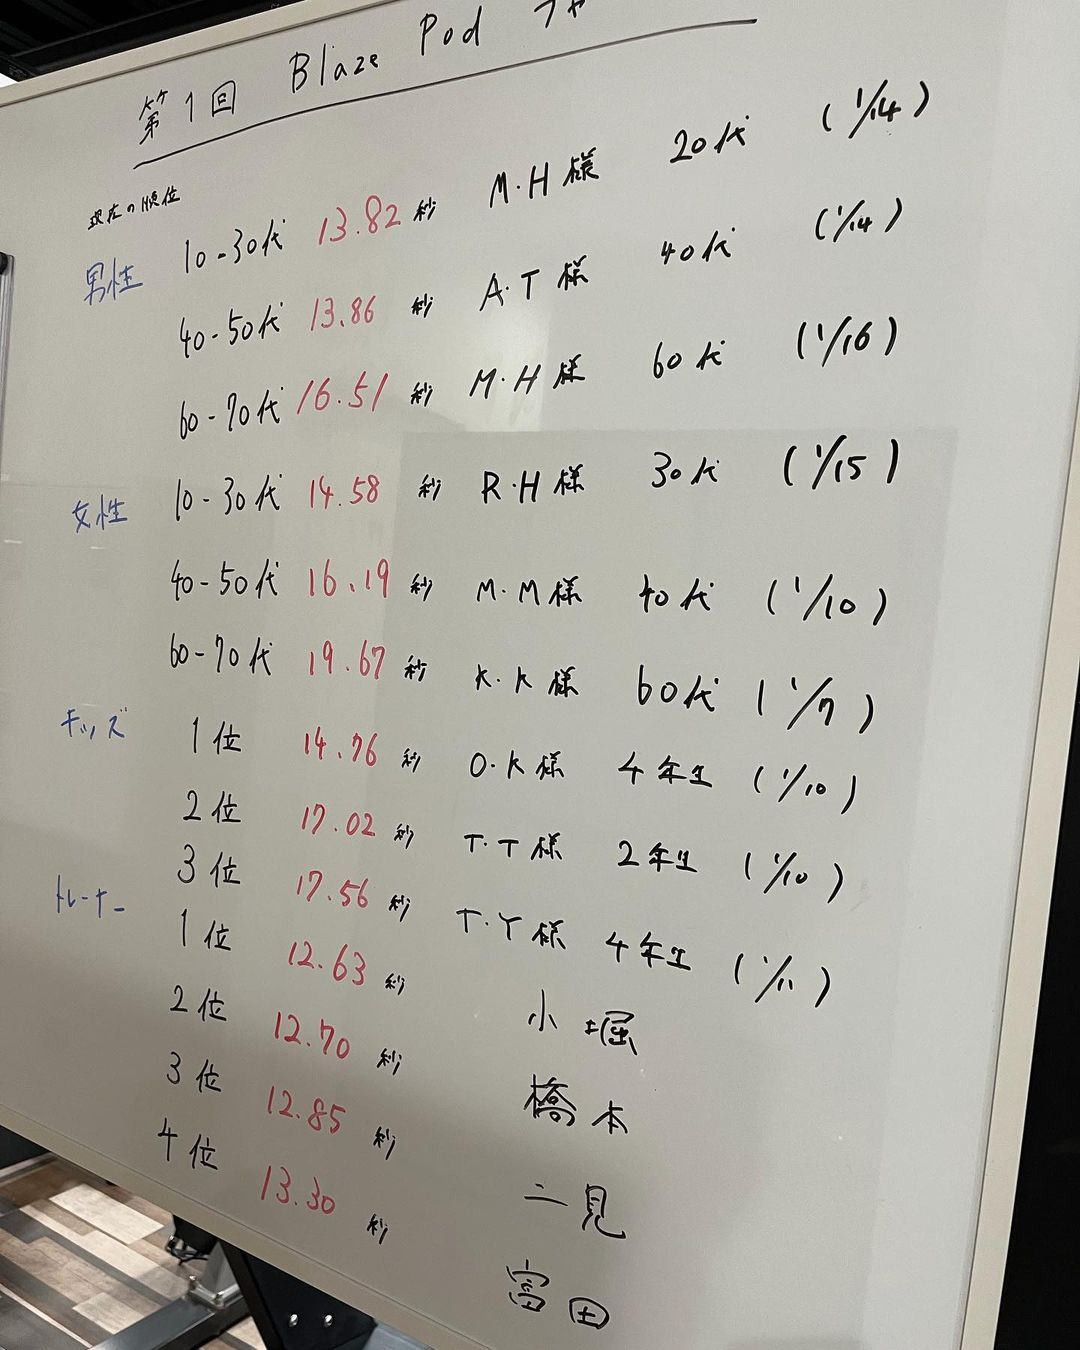 第1回 Blaze Pod チャ
現在の順位
男性 10-30代 13.82秒 M.H様 20代 (1/14)
40-50代 13.86秒 A.T様 40代 (1/14)
60-70代 16.51秒 M.H様 60代 (1/16)
女性 10-30代 14.58秒 R.H様 30代 (1/15)
40-50代 16.19秒 M.M様 40代 (1/10)
60-70代 19.67秒 K.K様 60代 (1/7)
キッズ 1位 14.76秒 O.K様 4年生 (1/10)
2位 17.02秒 T.T様 2年生 (1/10)
3位 17.56秒 T.Y様 4年生 (1/11)
トレーナー 1位 12.63秒 小堀
2位 12.70秒 橋本
3位 12.85秒 二見
4位 13.30秒 富田